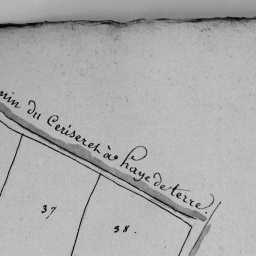 min du Ceriseret à haye de terre
37
38.